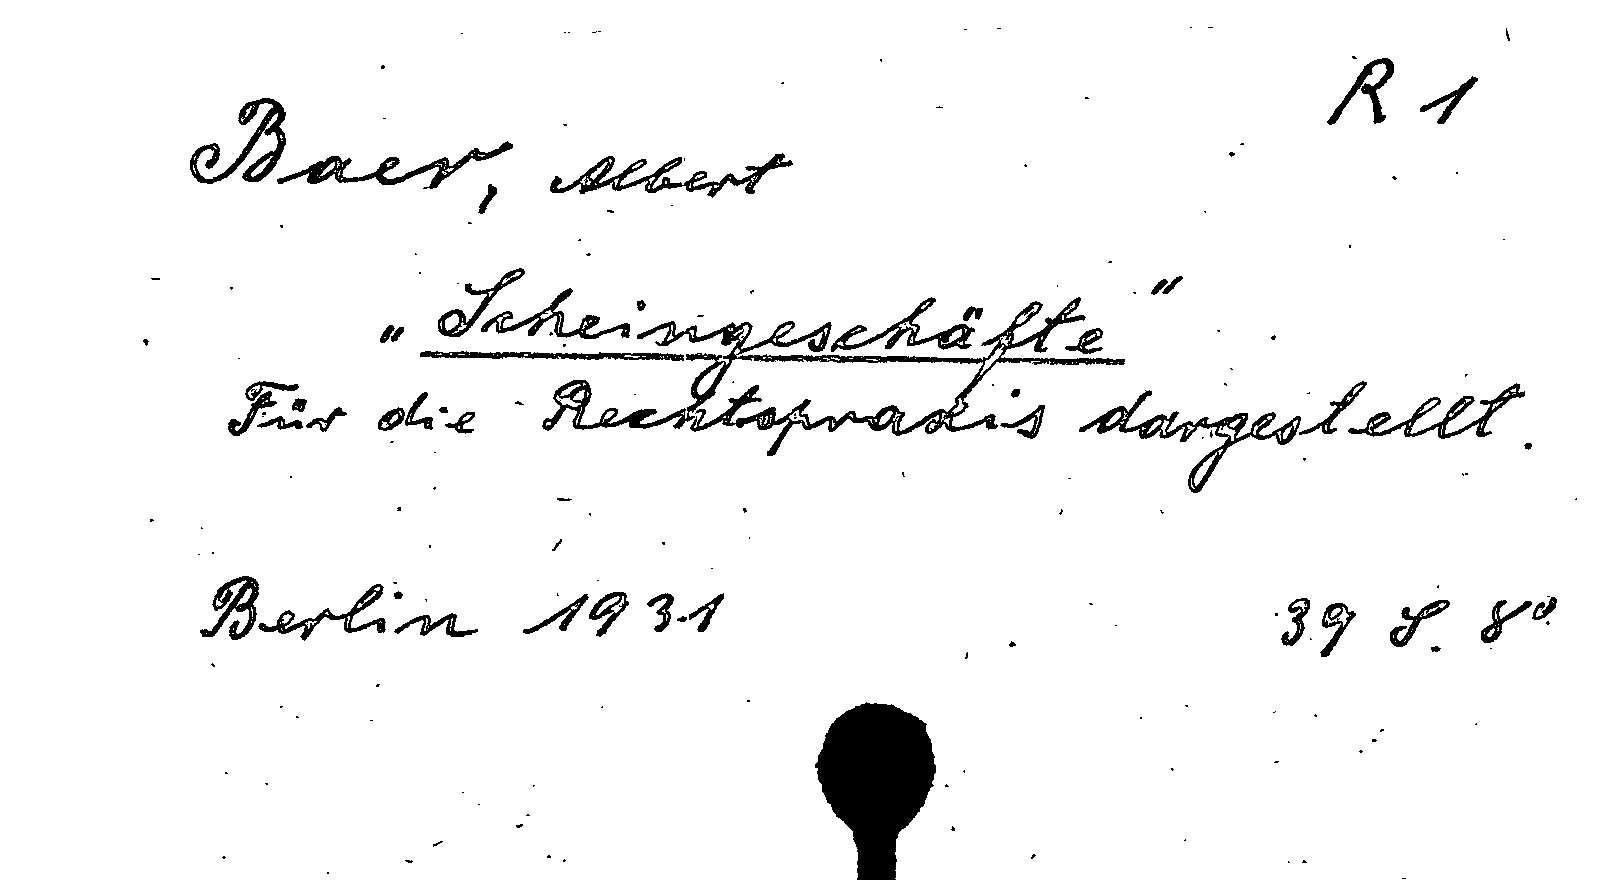 R 1
Baer, Albert
„Scheingeschäfte"
Für die Rechtspraxis dargestellt.
Berlin 1931 39 S. 8°